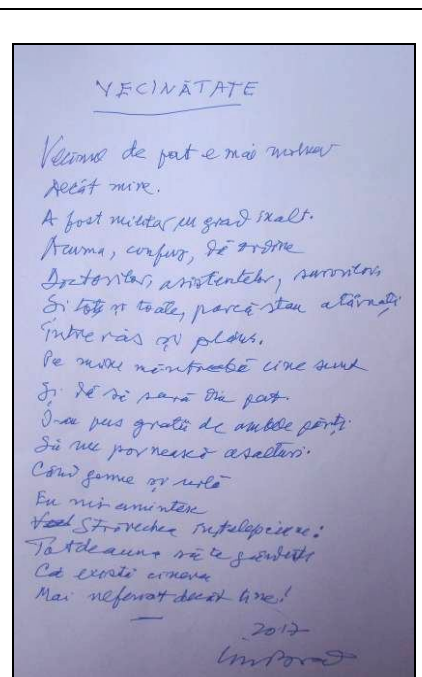 VECINĂTATE
Vecinul de pat e mai bolnav
Decât mine.
A fost militar cu grad înalt.
Acuma, confuz, dă ordine
Doctorilor, asistentelor, surorilor
Și toți și toate, parcă stau atârnați
Între râs și plâns.
Pe mine mă întreabă cine sunt
Și dă să sară din pat.
I-au pus gratii de ambele părți
Să nu pornească asalturi.
Când geme și urlă
Eu îmi amintesc
Străvechea înțelepciune:
Totdeauna să te gândești
Că există cineva
Mai nefericit decât tine!
2017